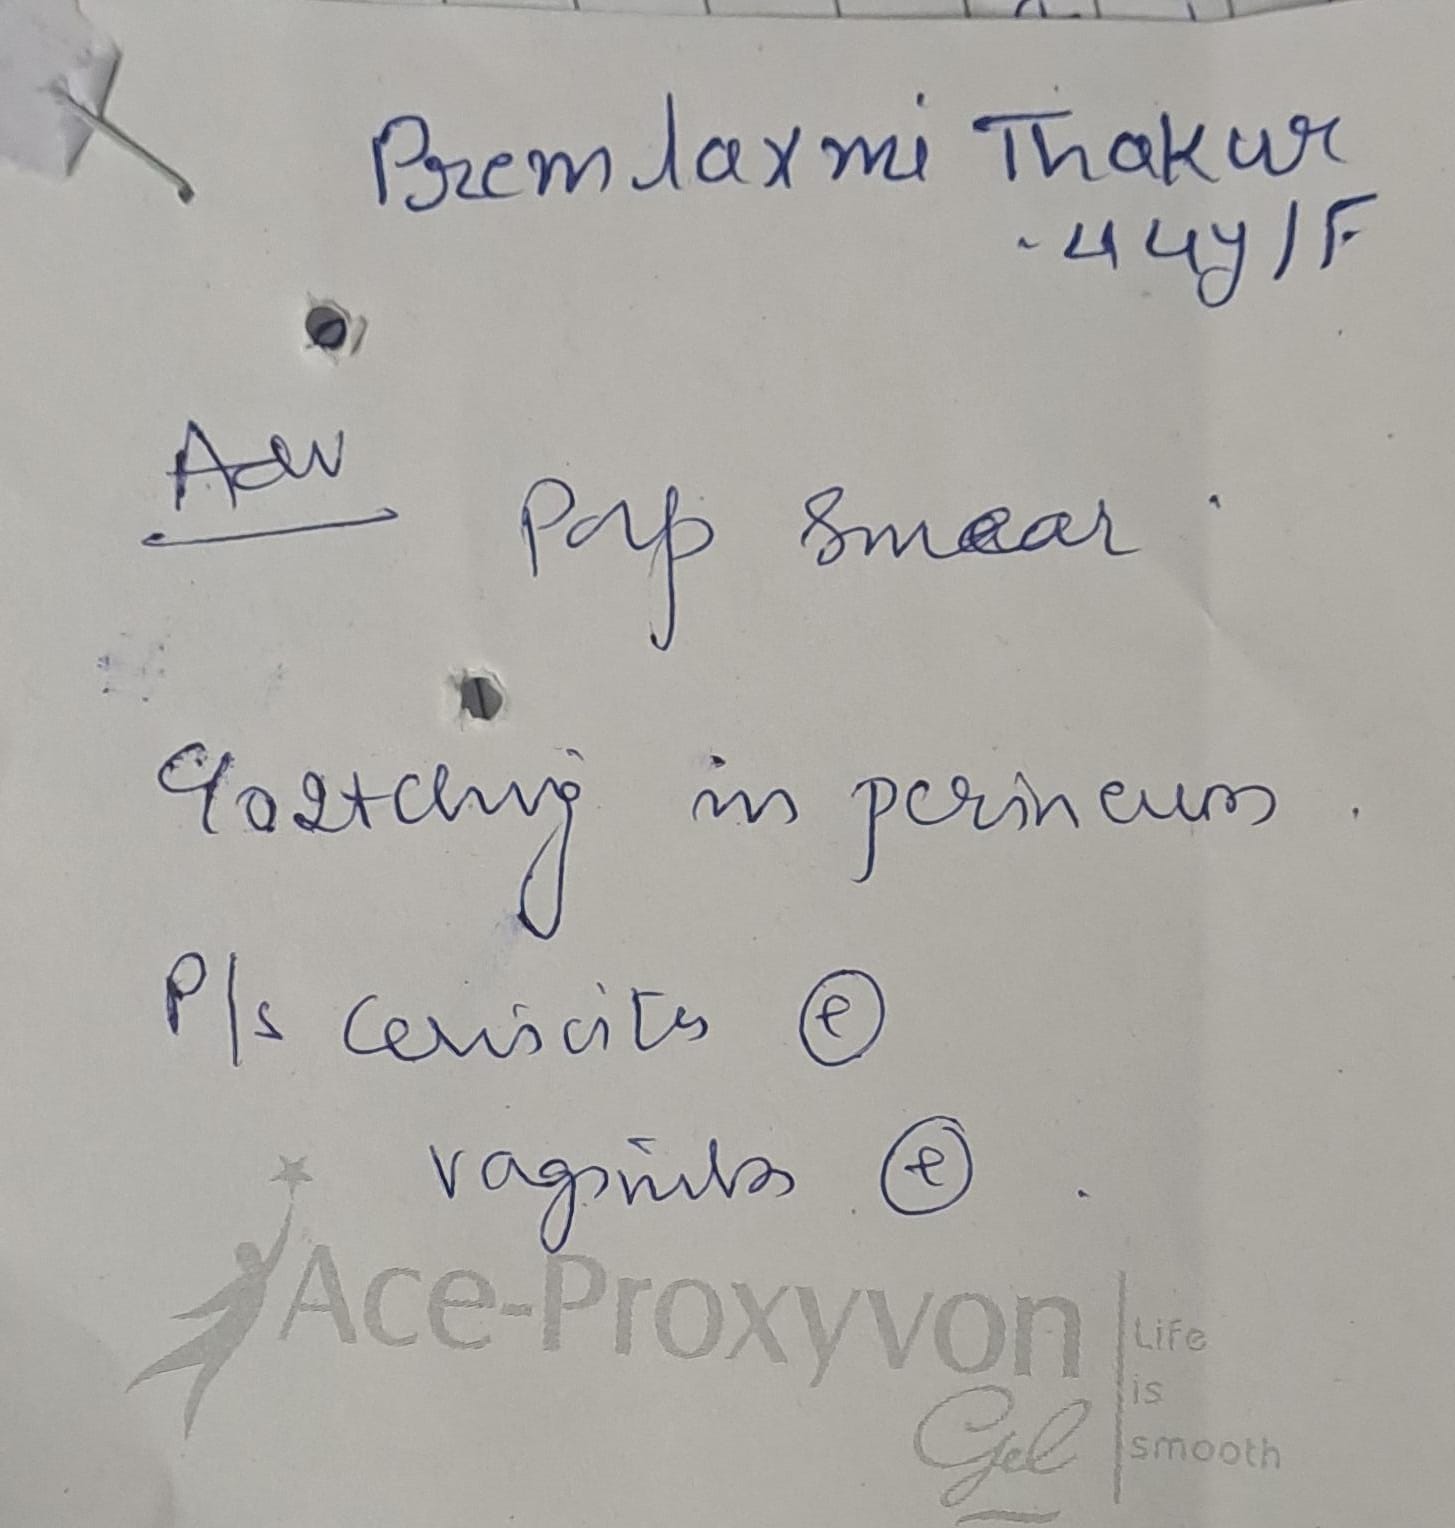 Premlaxmi Thakur
44y/F
Adv
Pap Smear
c/o Itching in perineum.
P/s Cervicitis ⊕
vaginitis ⊕.
Ace-Proxyvon
Gel
Life
is
smooth